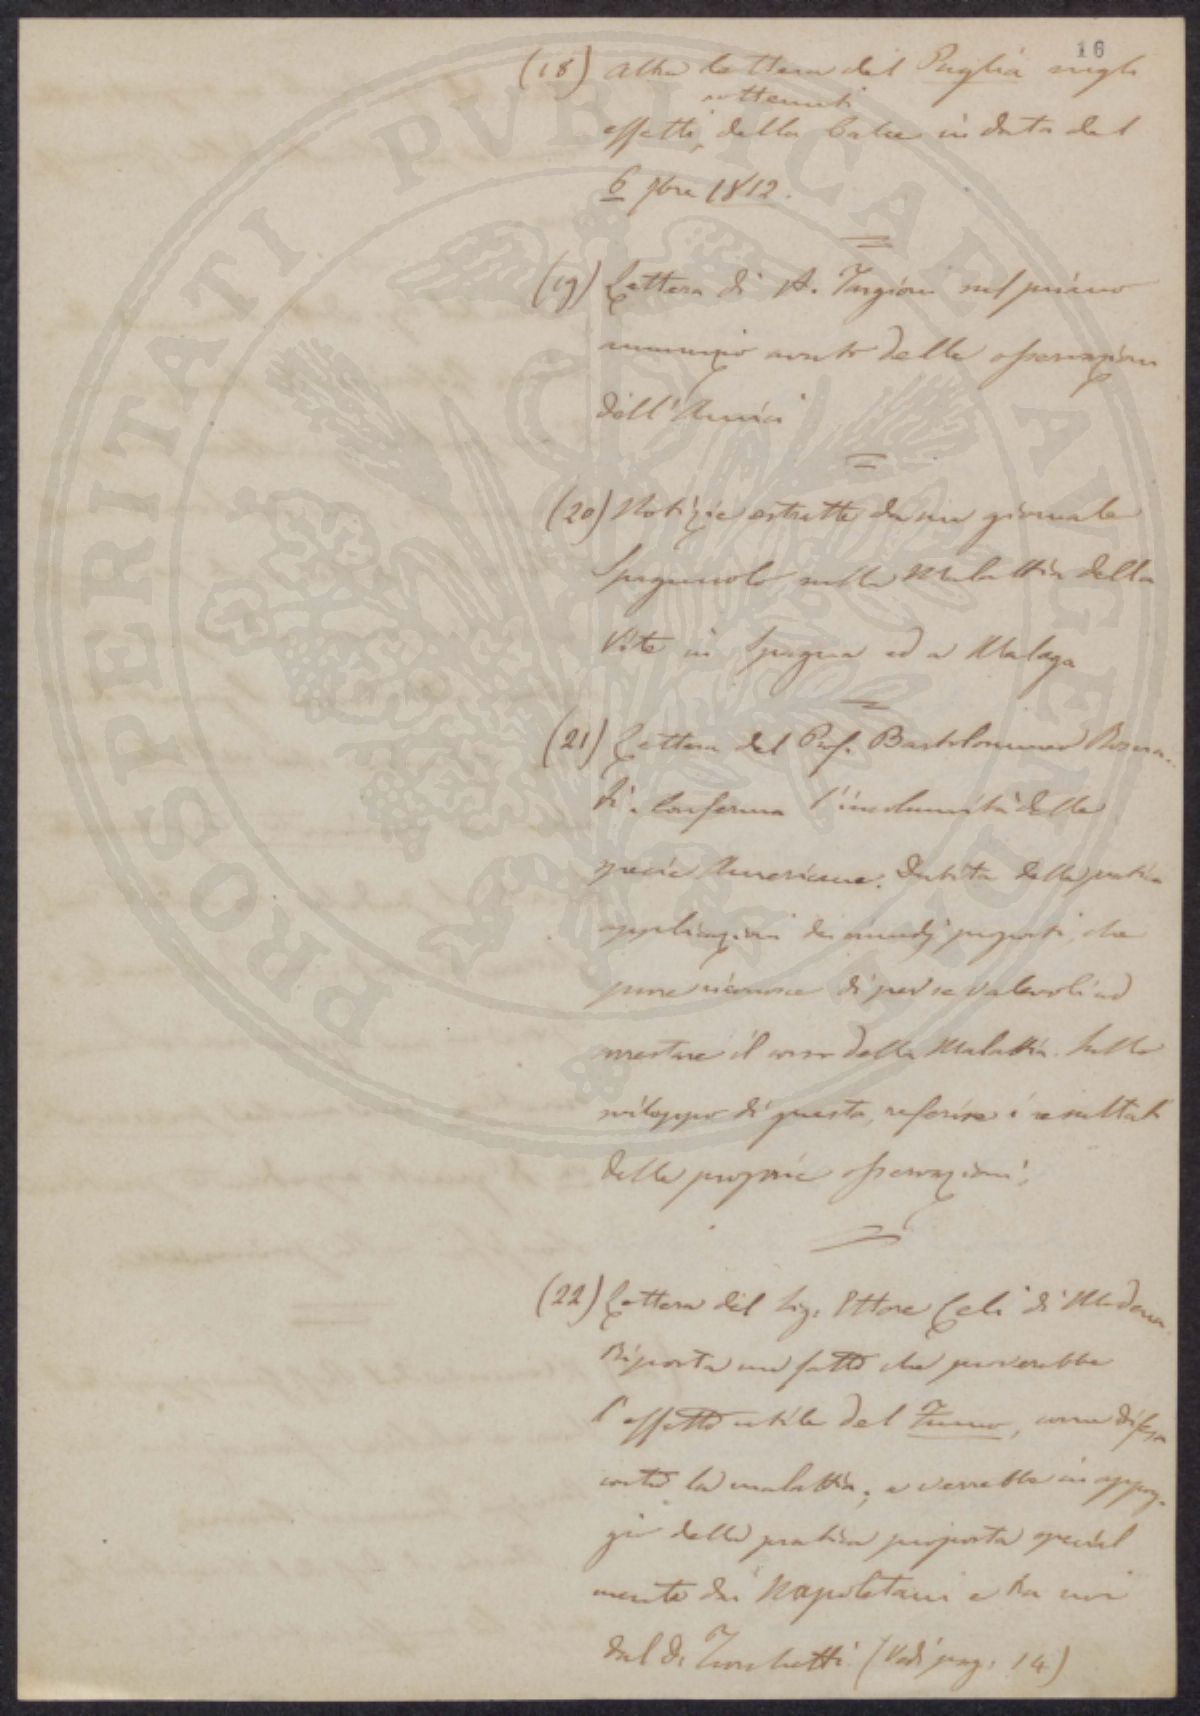 16
(18) Altra lettera del Puglia sugli
effetti ottenuti, della Calce in data del
6 7bre 1852.
(19) Lettera di A. Targioni sul primo
annunzio avuto delle osservazioni
dell'Amici
(20) Notizie estratte da un giornale
Spagnuolo sulla Malattia della
Vite in Spagna ed a Malaga
(21) Lettera del Prof. Bartolommeo
Conferma l'incolumità delle
specie Americane. Dubita della pratica
applicazioni dei rimedj proposti, che
pure riconosce di per se valevoli ad
arrestare il corso della Malattia. Sullo
sviluppo di questa, referisce i resultati
delle proprie osservazioni.
(22) Lettera del Sig. Ettore Celi di Modena
Riporta un fatto che proverebbe
l'effetto utile del Fumo, come difesa
contro la malattia; e verrebbe in appog-
gio della pratica proposta special
mente dai Napoletani e da noi
dal D. (Vedi pag. 14)
PROSPERITATI PVBLICAE AVGENDAE